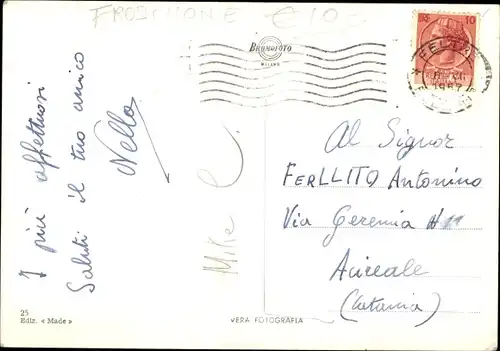 FROSCHONE €10-
BROMOFOTO
MILANO
10
FELTR
1957
I più affettuosi
Saluti il tuo amico
Nello
Mike
Al Signor
FERLLITO Antonino
Via Geremia N 11
Acireale
(Catania)
25
Ediz. « Made »
VERA FOTOGRAFIA